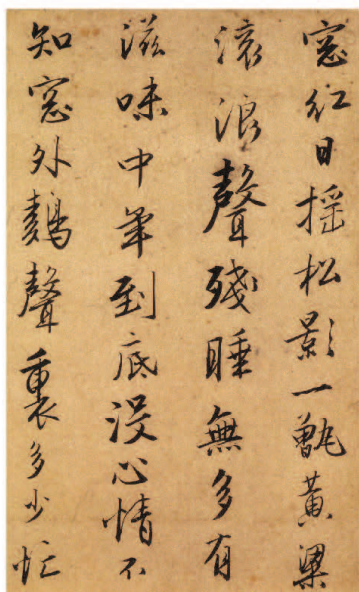 窓紅日搖松影一甑黄粱
滚浪聲殘睡無多有
滋味中年到底没心情不
知窓外鷄聲裏多少忙